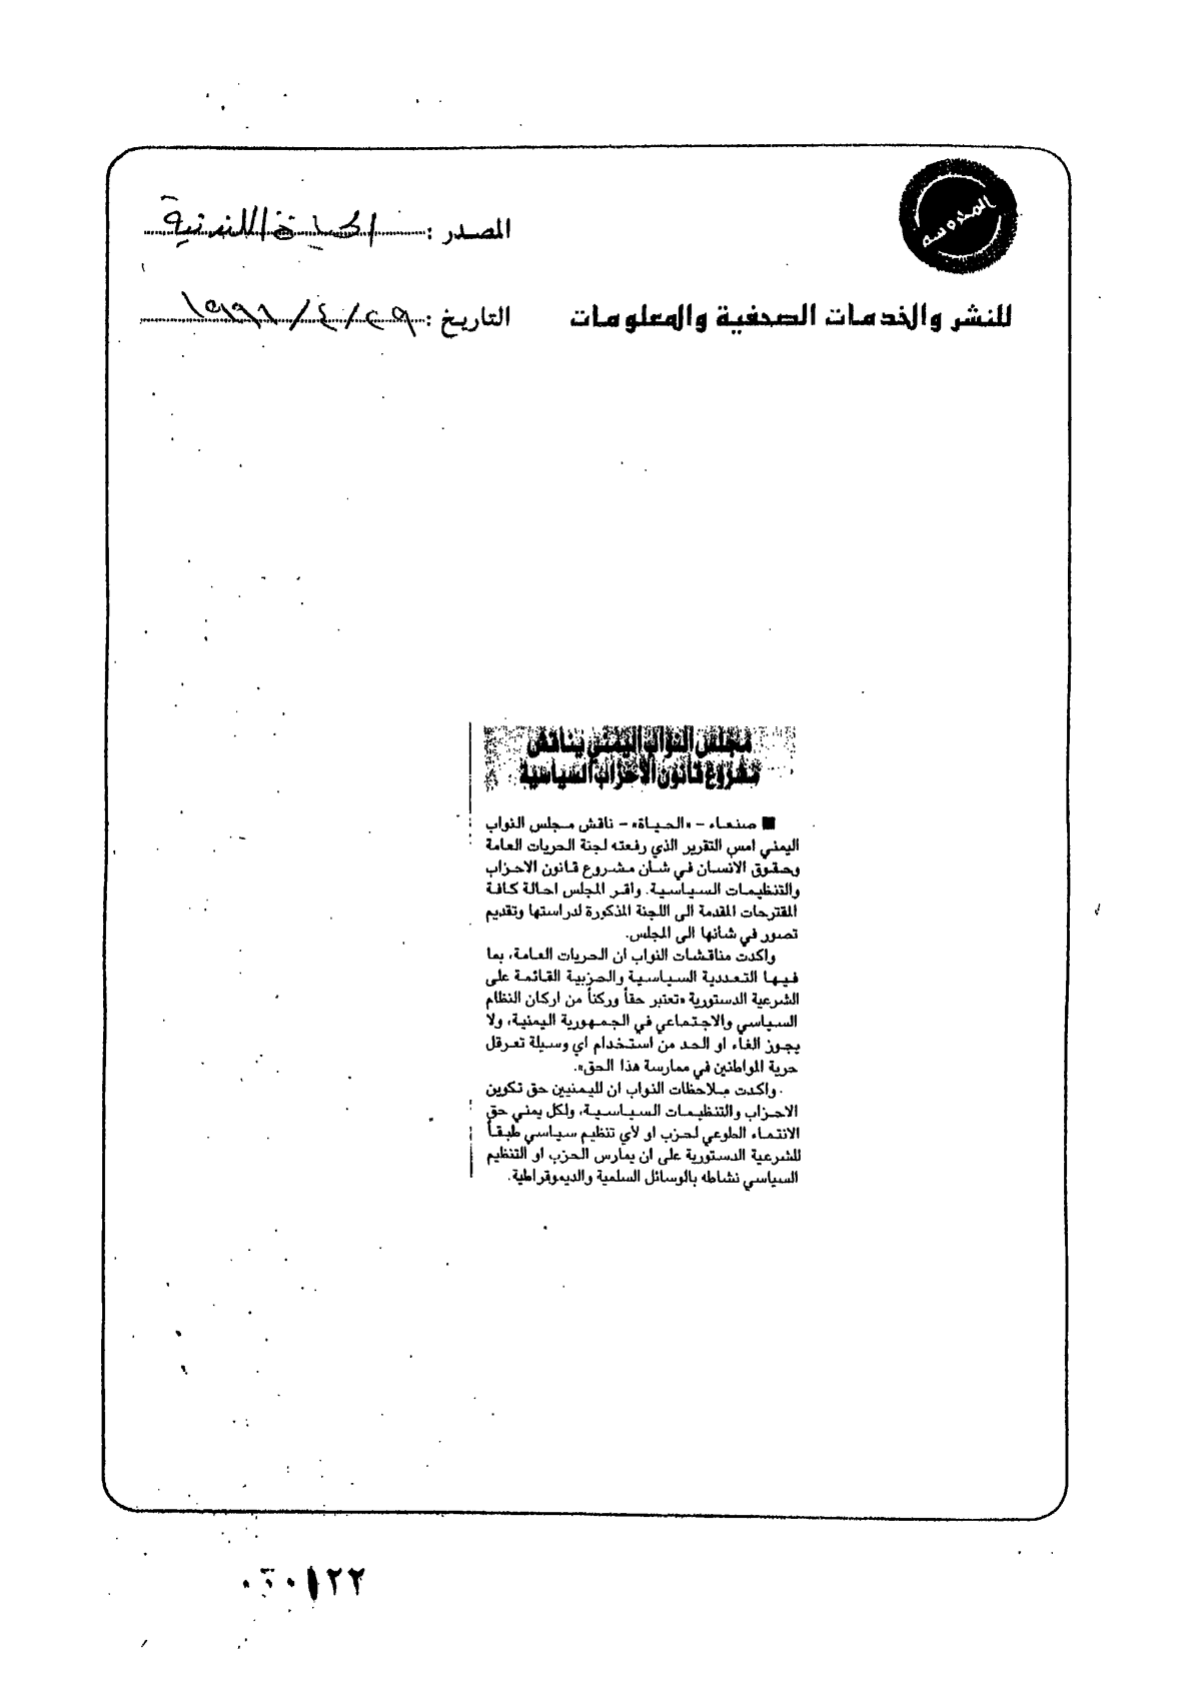 المحروسة
المصدر : الحياة اللندنية
للنشر والخدمات الصحفية والمعلومات
التاريخ :
مجلس النواب اليمني يناقش
مشروع قانون الاحزاب السياسية
■ صنعاء - «الحياة» - ناقش مجلس النواب
اليمني امس التقرير الذي رفعته لجنة الحريات العامة
وحقوق الانسان في شان مشروع قانون الاحزاب
والتنظيمات السياسية. واقر المجلس احالة كافة
المقترحات المقدمة الى اللجنة المذكورة لدراستها وتقديم
تصور في شانها الى المجلس.
واكدت مناقشات النواب ان الحريات العامة، بما
فيها التعددية السياسية والحزبية القائمة على
الشرعية الدستورية «تعتبر حقاً وركناً من اركان النظام
السياسي والاجتماعي في الجمهورية اليمنية، ولا
يجوز الغاء او الحد من استخدام اي وسيلة تعرقل
حرية المواطنين في ممارسة هذا الحق».
واكدت ملاحظات النواب ان لليمنيين حق تكوين
الاحزاب والتنظيمات السياسية، ولكل يمني حق
الانتماء الطوعي لحزب او لأي تنظيم سياسي طبقاً
للشرعية الدستورية على ان يمارس الحزب او التنظيم
السياسي نشاطه بالوسائل السلمية والديموقراطية.